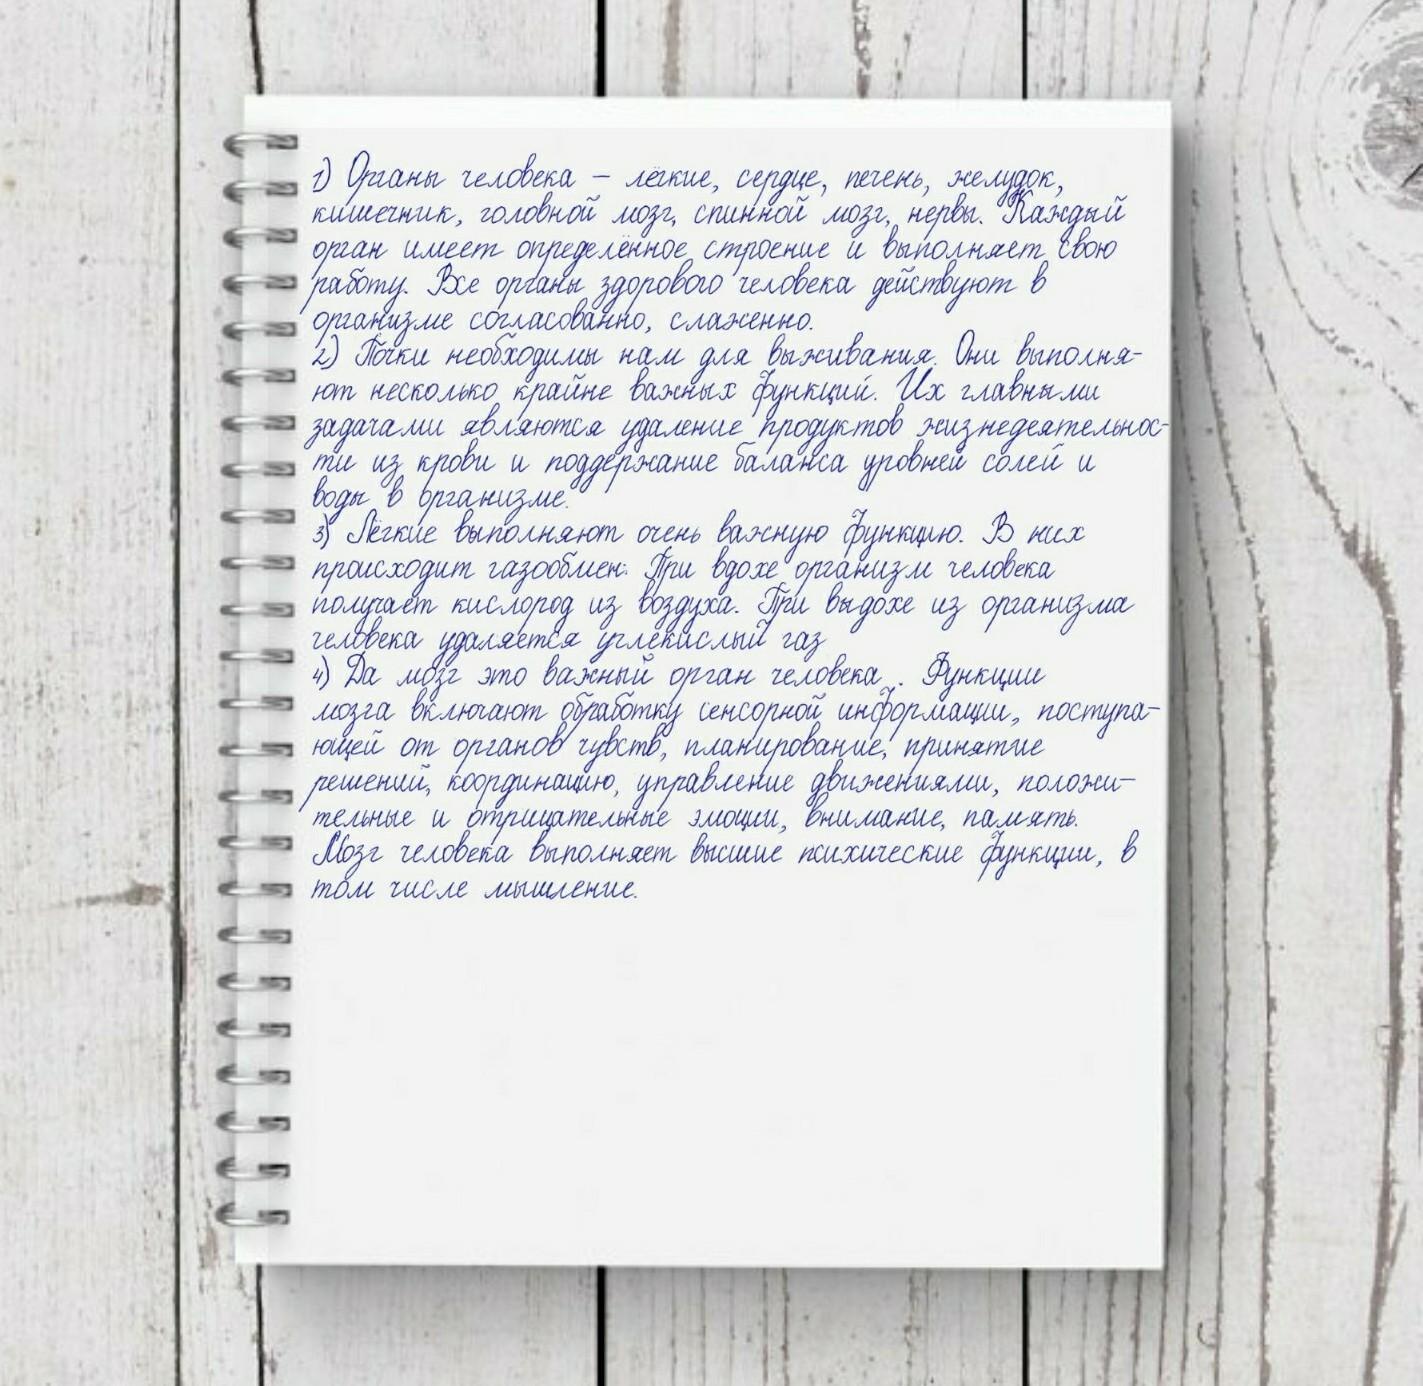 1) Органы человека – лёгкие, сердце, печень, желудок,
кишечник, головной мозг, спинной мозг, нервы. Каждый
орган имеет определённое строение и выполняет свою
работу. Все органы здорового человека действуют в
организме согласованно, слаженно.
2) Почки необходимы нам для выживания. Они выполня-
ют несколько крайне важных функций. Их главными
задачами являются удаление продуктов жизнедеятельнос-
ти из крови и поддержание баланса уровней солей и
воды в организме.
3) Лёгкие выполняют очень важную функцию. В них
происходит газообмен. При вдохе организм человека
получает кислород из воздуха. При выдохе из организма
человека удаляется углекислый газ
4) Да мозг это важный орган человека . Функции
мозга включают обработку сенсорной информации, поступа-
ющей от органов чувств, планирование, принятие
решений, координацию, управление движениями, положи-
тельные и отрицательные эмоции, внимание, память.
Мозг человека выполняет высшие психические функции, в
том числе мышление.